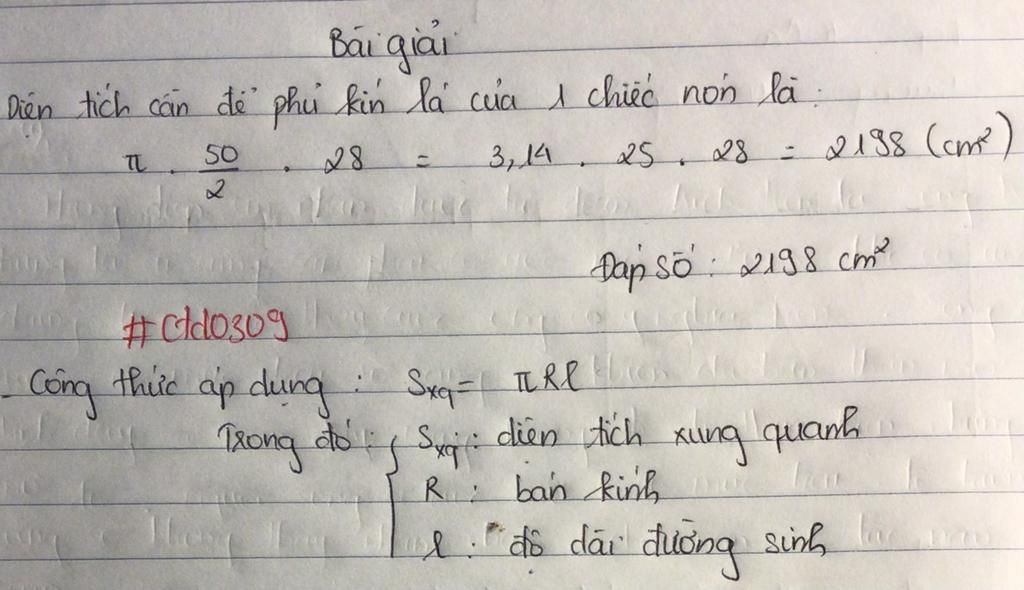 Bài giải
Diện tích cần để phủ kín lá của 1 chiếc nón là:
π . 50/2 . 28 = 3,14 . 25 . 28 = 2198 (cm²)
Đáp số : 2198 cm²
#Ctd0309
- Công thức áp dụng : Sxq = πRl
Trong đó : { Sxq : diện tích xung quanh
R : bán kính
l : độ dài đường sinh